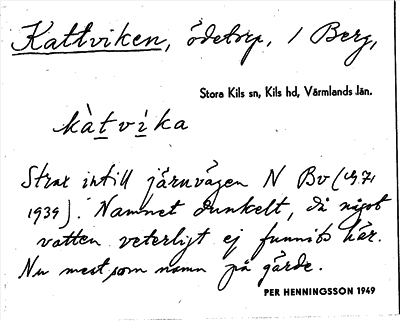 Kattviken, ödetorp, 1 Berg,
Stora Kils sn, Kils hd, Värmlands län.
kàtvika
Strax intill järnvägen N Bv (
1939). Namnet dunkelt, då något
vatten veterligt ej funnits här.
Nu mest som namn på gärde.
PER HENNINGSSON 1949